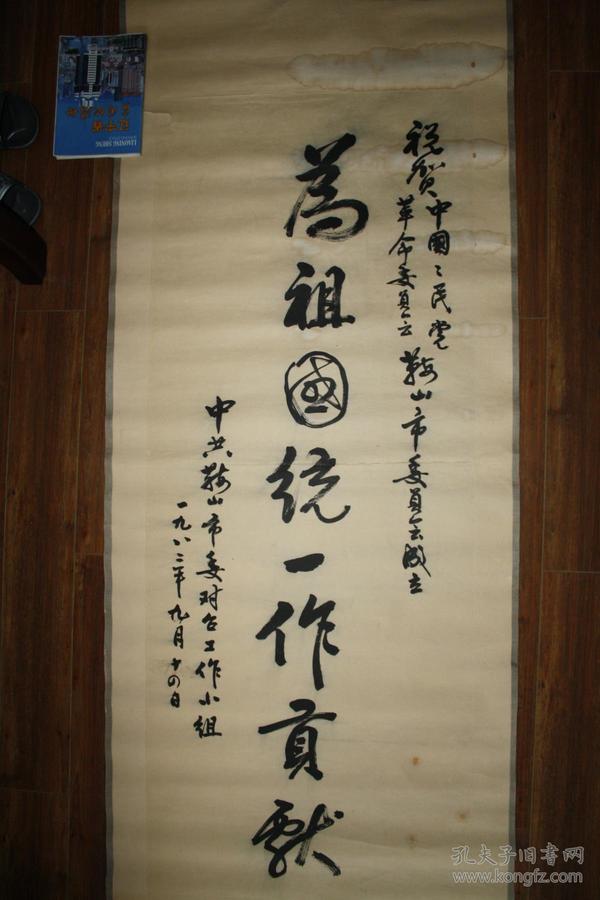 祝贺中國〻民党
革命委员会
鞍山市委员会成立
為祖國统一作貢獻
中共鞍山市委对台工作小组
一九八二年九月十四日
LIAONING SHENG
孔夫子旧書网
www.kongfz.com